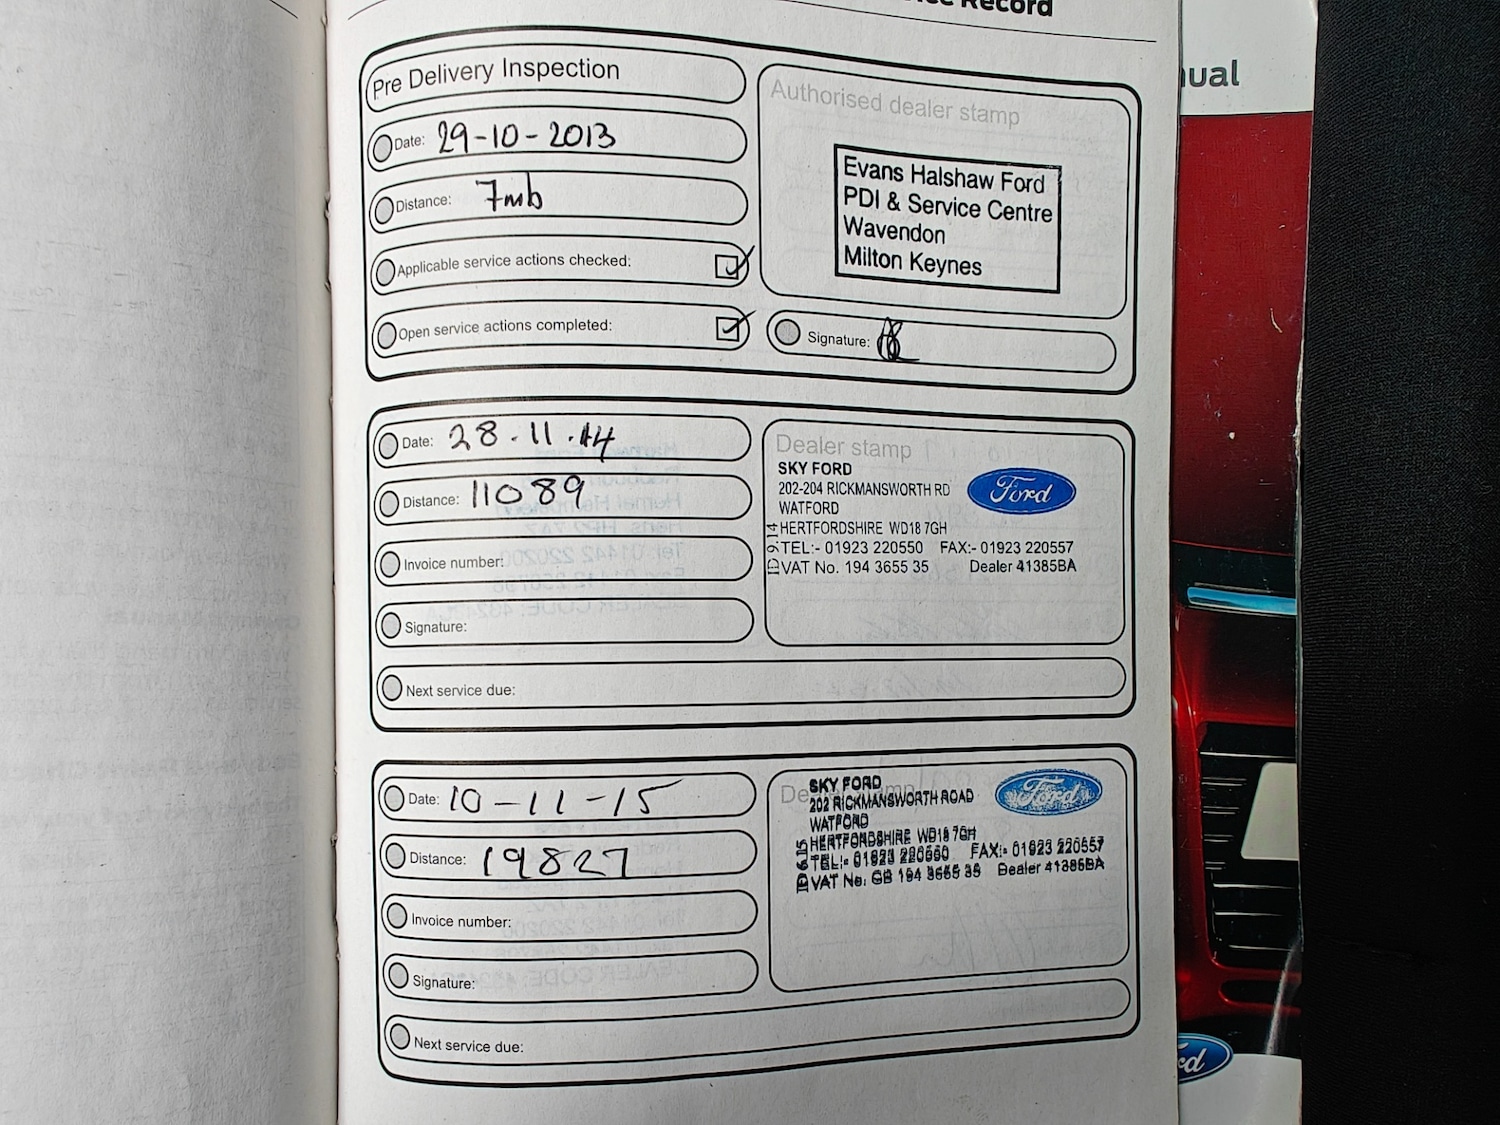 Record
Pre Delivery Inspection
Date: 29-10-2013
Distance: 7mls
Applicable service actions checked:
Open service actions completed:
Authorised dealer stamp
Evans Halshaw Ford
PDI & Service Centre
Wavendon
Milton Keynes
Signature:
Date: 28.11.14
Distance: 11089
Invoice number:
Signature:
Next service due:
Dealer stamp
SKY FORD
202-204 RICKMANSWORTH RD
WATFORD
HERTFORDSHIRE WD18 7GH
TEL:- 01923 220550 FAX:- 01923 220557
VAT No. 194 3655 35 Dealer 41385BA
ID 9.14
Ford
Date: 10-11-15
Distance: 19827
Invoice number:
Signature:
Next service due:
SKY FORD
202 RICKMANSWORTH ROAD
WATFORD
HERTFORDSHIRE WD18 7GH
TEL:- 01923 220550 FAX:- 01923 220557
VAT No. GB 194 3655 35 Dealer 41385BA
Ford